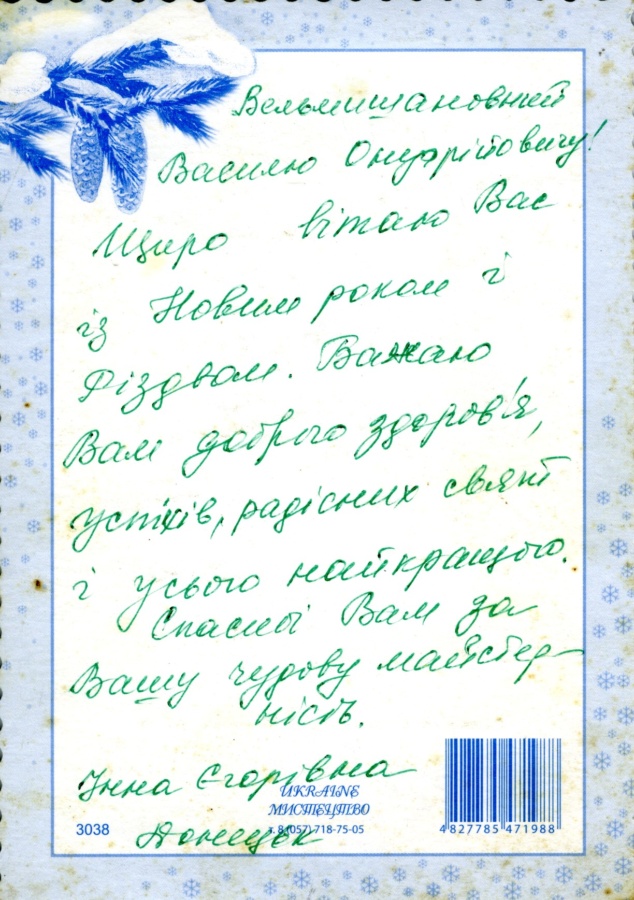 Вельмишановний
Василю Онуфрійовичу!
Щиро вітаю Вас
із Новим роком і
Різдвом. Бажаю
Вам доброго здоров'я,
успіхів, радісних свят
і усього найкращого.
Спасибі Вам за
Вашу чудову майстер-
ність.
Інна Єгорівна
UKRAINE
МИСТЕЦТВО
3038
т. 8 (057) 718-75-05
Донецьк
4 827785 471988